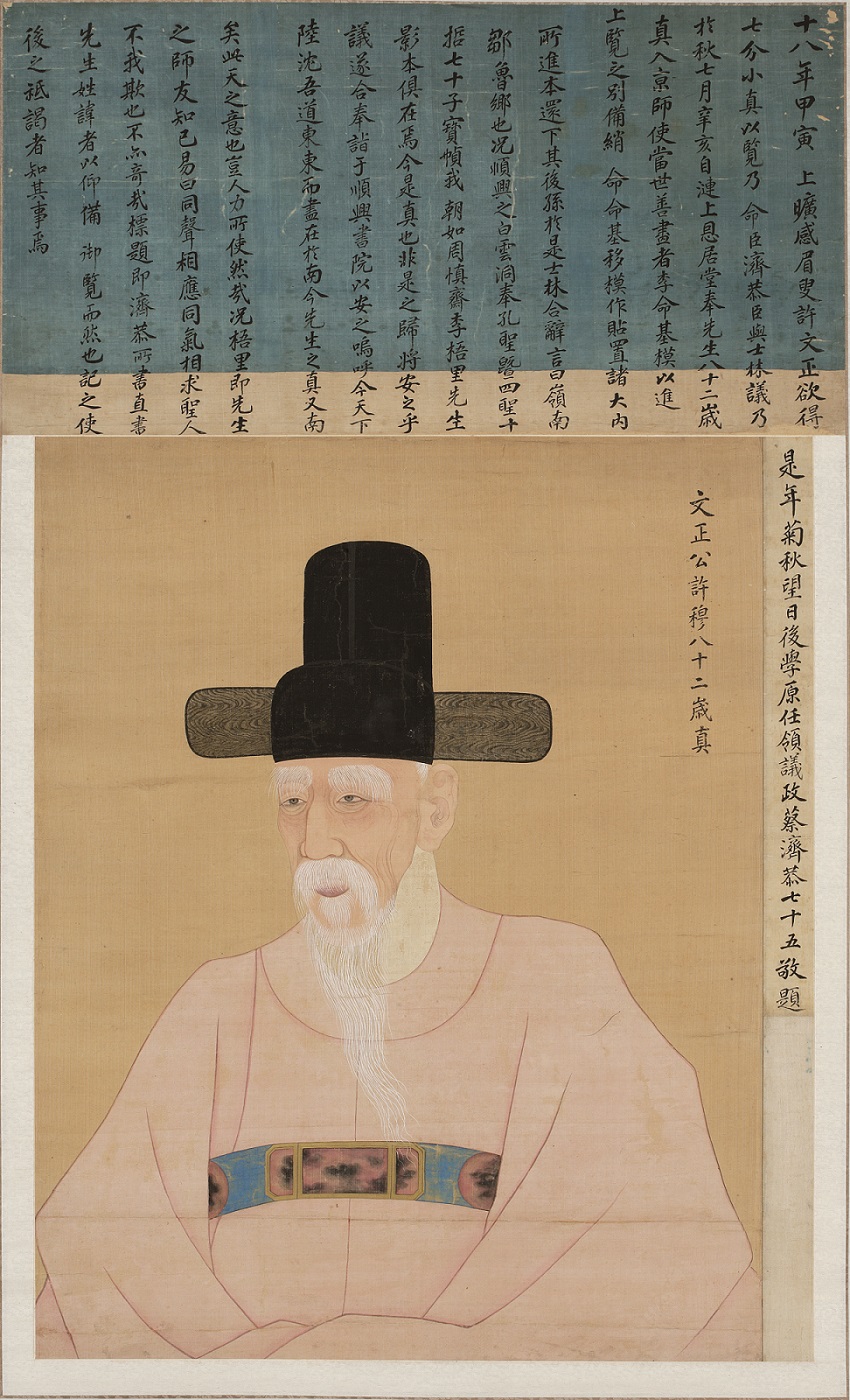 十八年甲寅 上曠感眉叟許文正欲得
七分小真以覽乃 命臣濟恭臣與士林議乃
於秋七月辛亥自漣上恩居堂奉先生八十二歲
真入京師使當世善畫者李命基模以進
上覽之別備綃 命命基移模作貼置諸大内
所進本還下其後孫於是士林合辭言曰嶺南
鄒魯鄉也况順興之白雲洞奉孔聖曁四聖十
哲七十子寶幀我 朝如周慎齋李梧里先生
影本俱在焉今是真也非是之歸將安之乎
議遂合奉詣于順興書院以安之嗚呼今天下
陸沈吾道東東而盡在於南今先生之真又南
矣此天之意也豈人力所使然哉况梧里即先生
之師友知已易曰同聲相應同氣相求聖人
不我欺也不亦奇哉標題即濟恭所書直書
先生姓諱者以仰備 御覽而然也記之使
後之祗謁者知其事焉
是年菊秋望日後學原任領議政蔡濟恭七十五敬題
文正公許穆八十二歲真